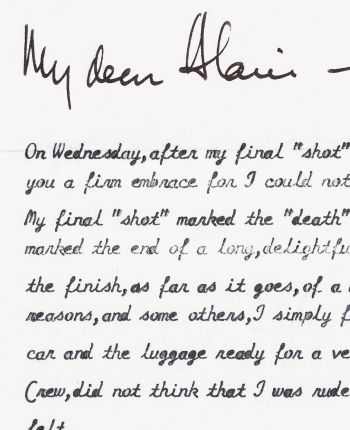 My dear Alain —
On Wednesday, after my final "shot"
you a firm embrace for I could not
My final "shot" marked the "death"
marked the end of a long, delightfu
the finish, as far as it goes, of a
reasons, and some others, I simply f
car and the luggage ready for a ve
Crew, did not think that I was rude
felt